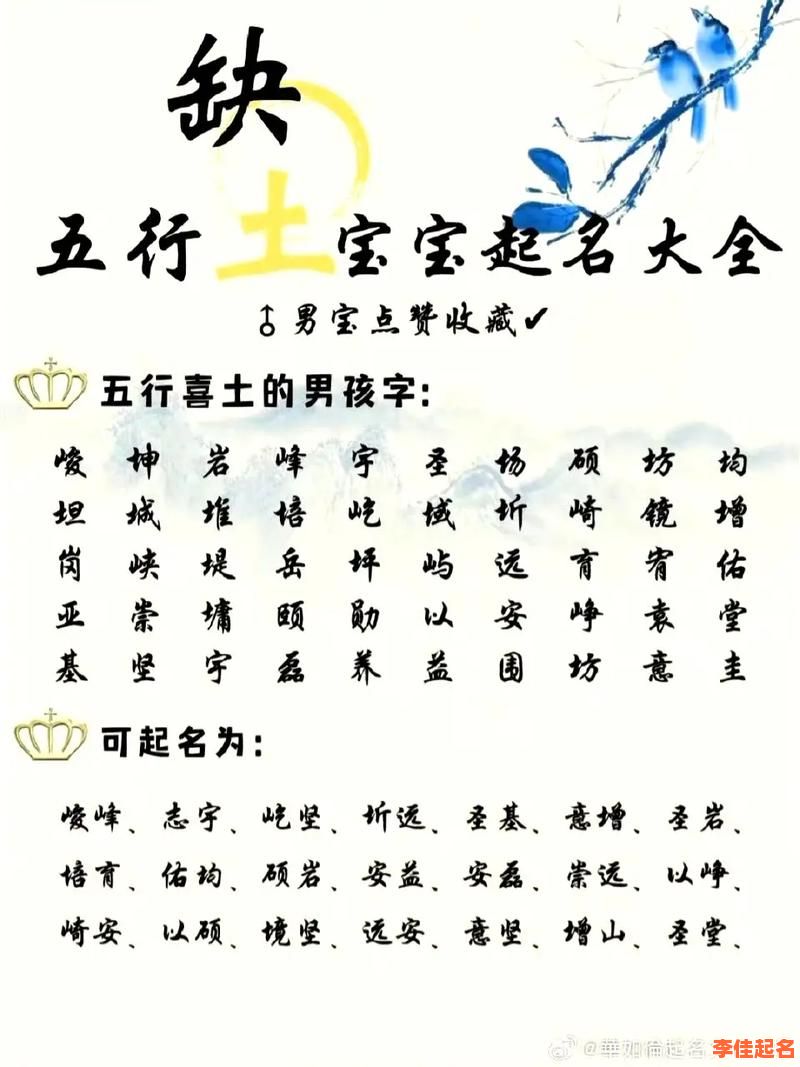 缺
五行土宝宝起名大全
♂男宝点赞收藏✔
五行喜土的男孩字:
峻 坤 岩 峰 宇 圣 场 硕 坊 均
坦 城 堆 培 屹 域 圻 崎 镜 增
岗 峡 堤 岳 坪 屿 远 育 宥 佑
亚 崇 墉 颐 勋 以 安 峥 袁 堂
基 坚 宇 磊 养 益 围 坊 意 圭
可起名为:
峻峰、志宇、屹坚、圻远、圣基、意增、圣岩、
培育、佑均、硕岩、安益、安磊、崇远、以峥、
崎安、以硕、境坚、远安、意坚、增山、圣堂、
@華如倫起名 李佳起名